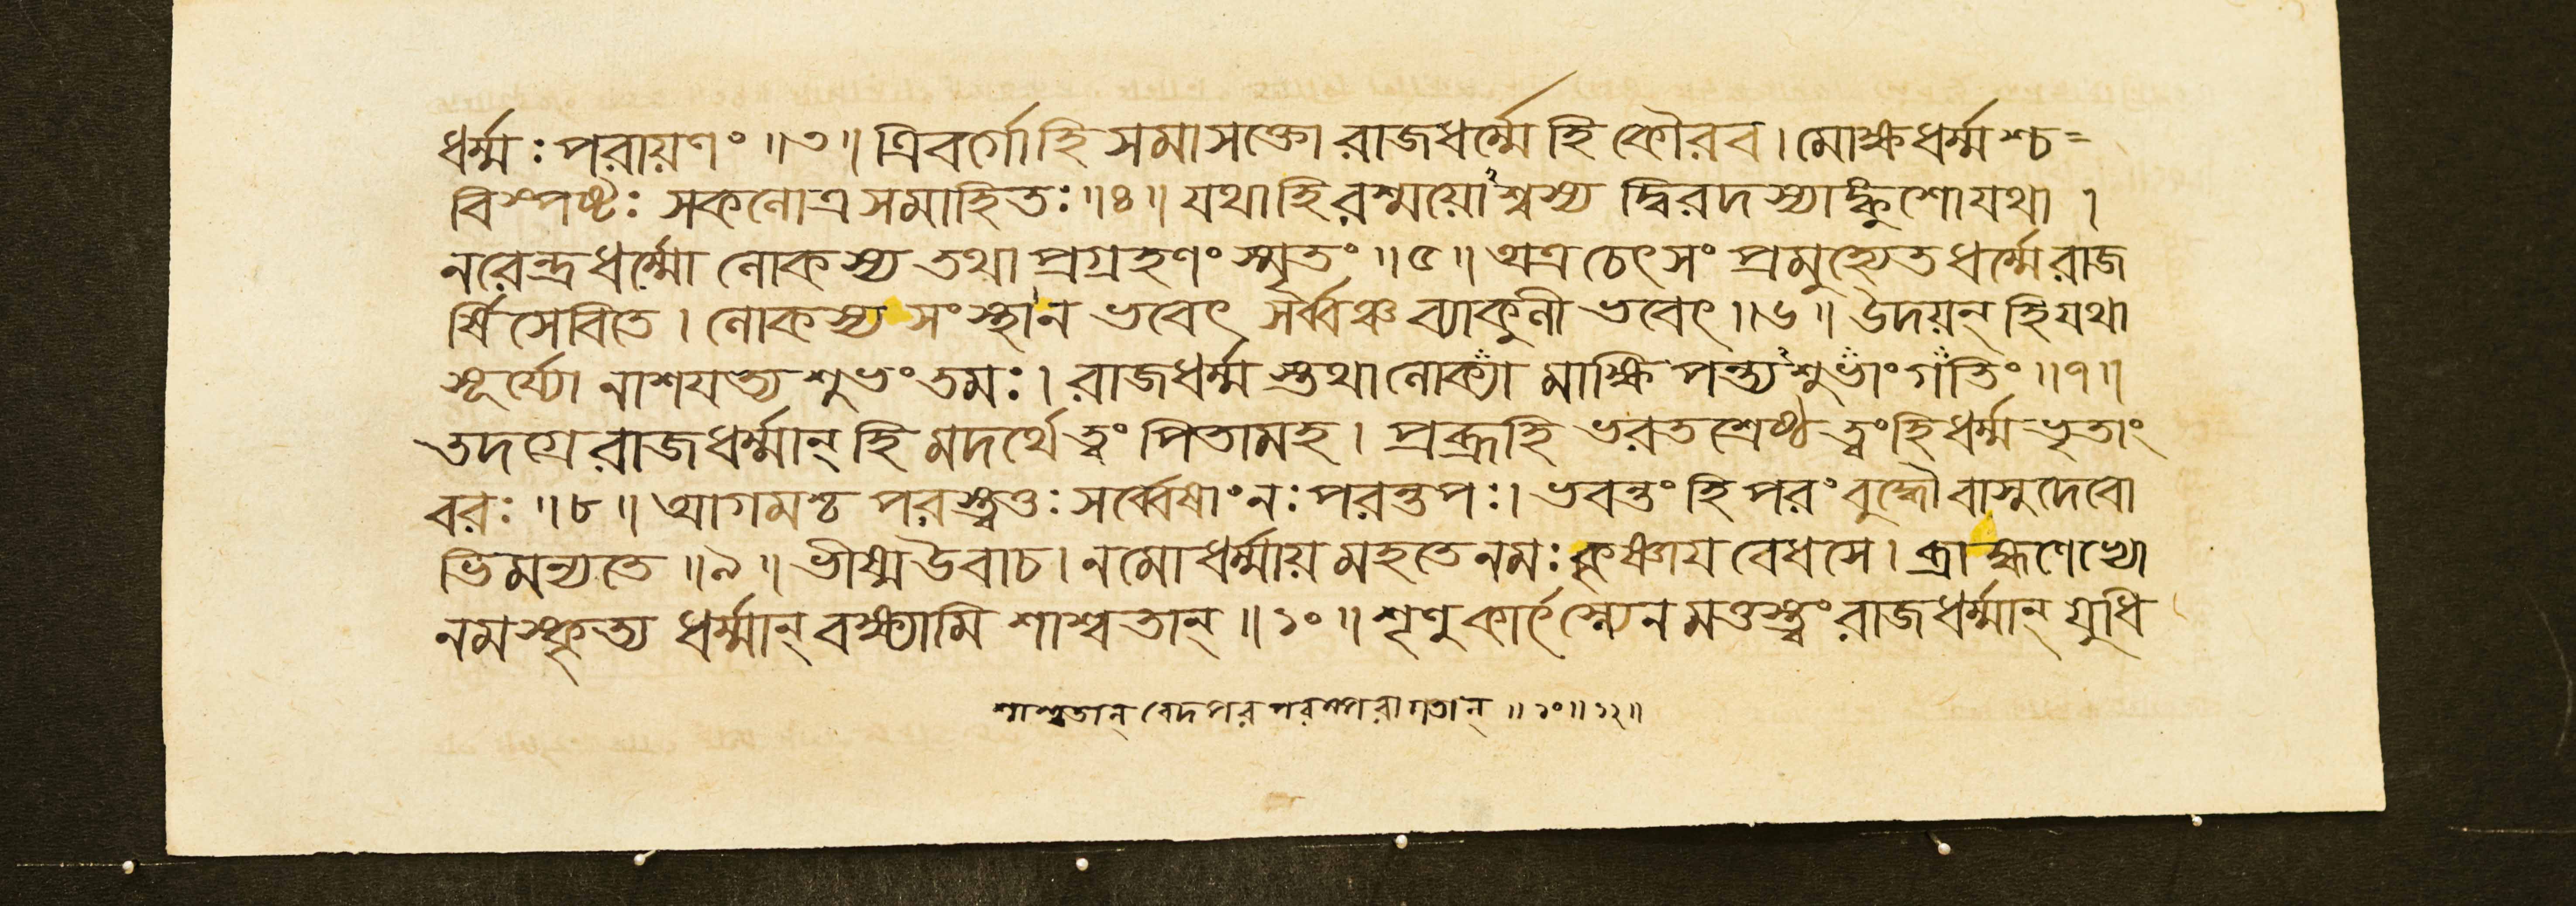 ধর্ম্মঃ পরায়ণং ॥৩॥ ত্রিবর্গোহি সমাসক্তো রাজধর্ম্মেহি কৌরব। মোক্ষধর্ম্মশ্চ=
বিস্পষ্টঃ সকলোত্র সমাহিতঃ॥৪॥ যথাহি রশ্ময়োঽশ্বস্য দ্বিরদস্যাঙ্কুশোযথা।
নরেন্দ্রধর্ম্মো লোকস্য তথা প্রগ্রহণং স্মৃতং ॥৫॥ অত্র চেৎসং প্রমুহ্যেত ধর্ম্মেরাজ
র্ষিসেবিতে। লোকস্য সংস্থা ন ভবেৎ সর্ব্বঞ্চ ব্যাকুলী ভবেৎ॥৬॥ উদয়ন্ হি যথা
সূর্য্যো নাশযত্য শুভংতমঃ। রাজধর্ম্মাস্তথালোক্যা মাক্ষিপন্ত্যঽশুভাং গতিং ॥৭॥
তদগ্রে রাজধর্ম্মান্ হি মদর্থে ত্বং পিতামহ। প্রব্রূহি ভরতশ্রেষ্ঠ ত্বংহি ধর্ম্মভৃতাং
বরঃ ॥৮॥ আগমশ্চ পরস্ত্বত্তঃ সর্ব্বেষাংনঃ পরন্তপঃ। ভবন্তং হি পরং বুদ্ধৌ বাসুদেবো
ভিমন্যতে ॥৯॥ ভীষ্ম উবাচ। নমো ধর্ম্মায় মহতে নমঃ কৃষ্ণায বেধসে। ব্রাহ্মণেভ্যো
নমস্কৃত্য ধর্ম্মান্ বক্ষ্যামি শাশ্বতান্ ॥১০॥ শৃণু কার্ৎস্ন্যেন মত্তস্ত্বং রাজধর্ম্মান্ যুধি
শাশ্বতান্ বেদপর পরম্পরাগতান্ ॥১০॥১২॥